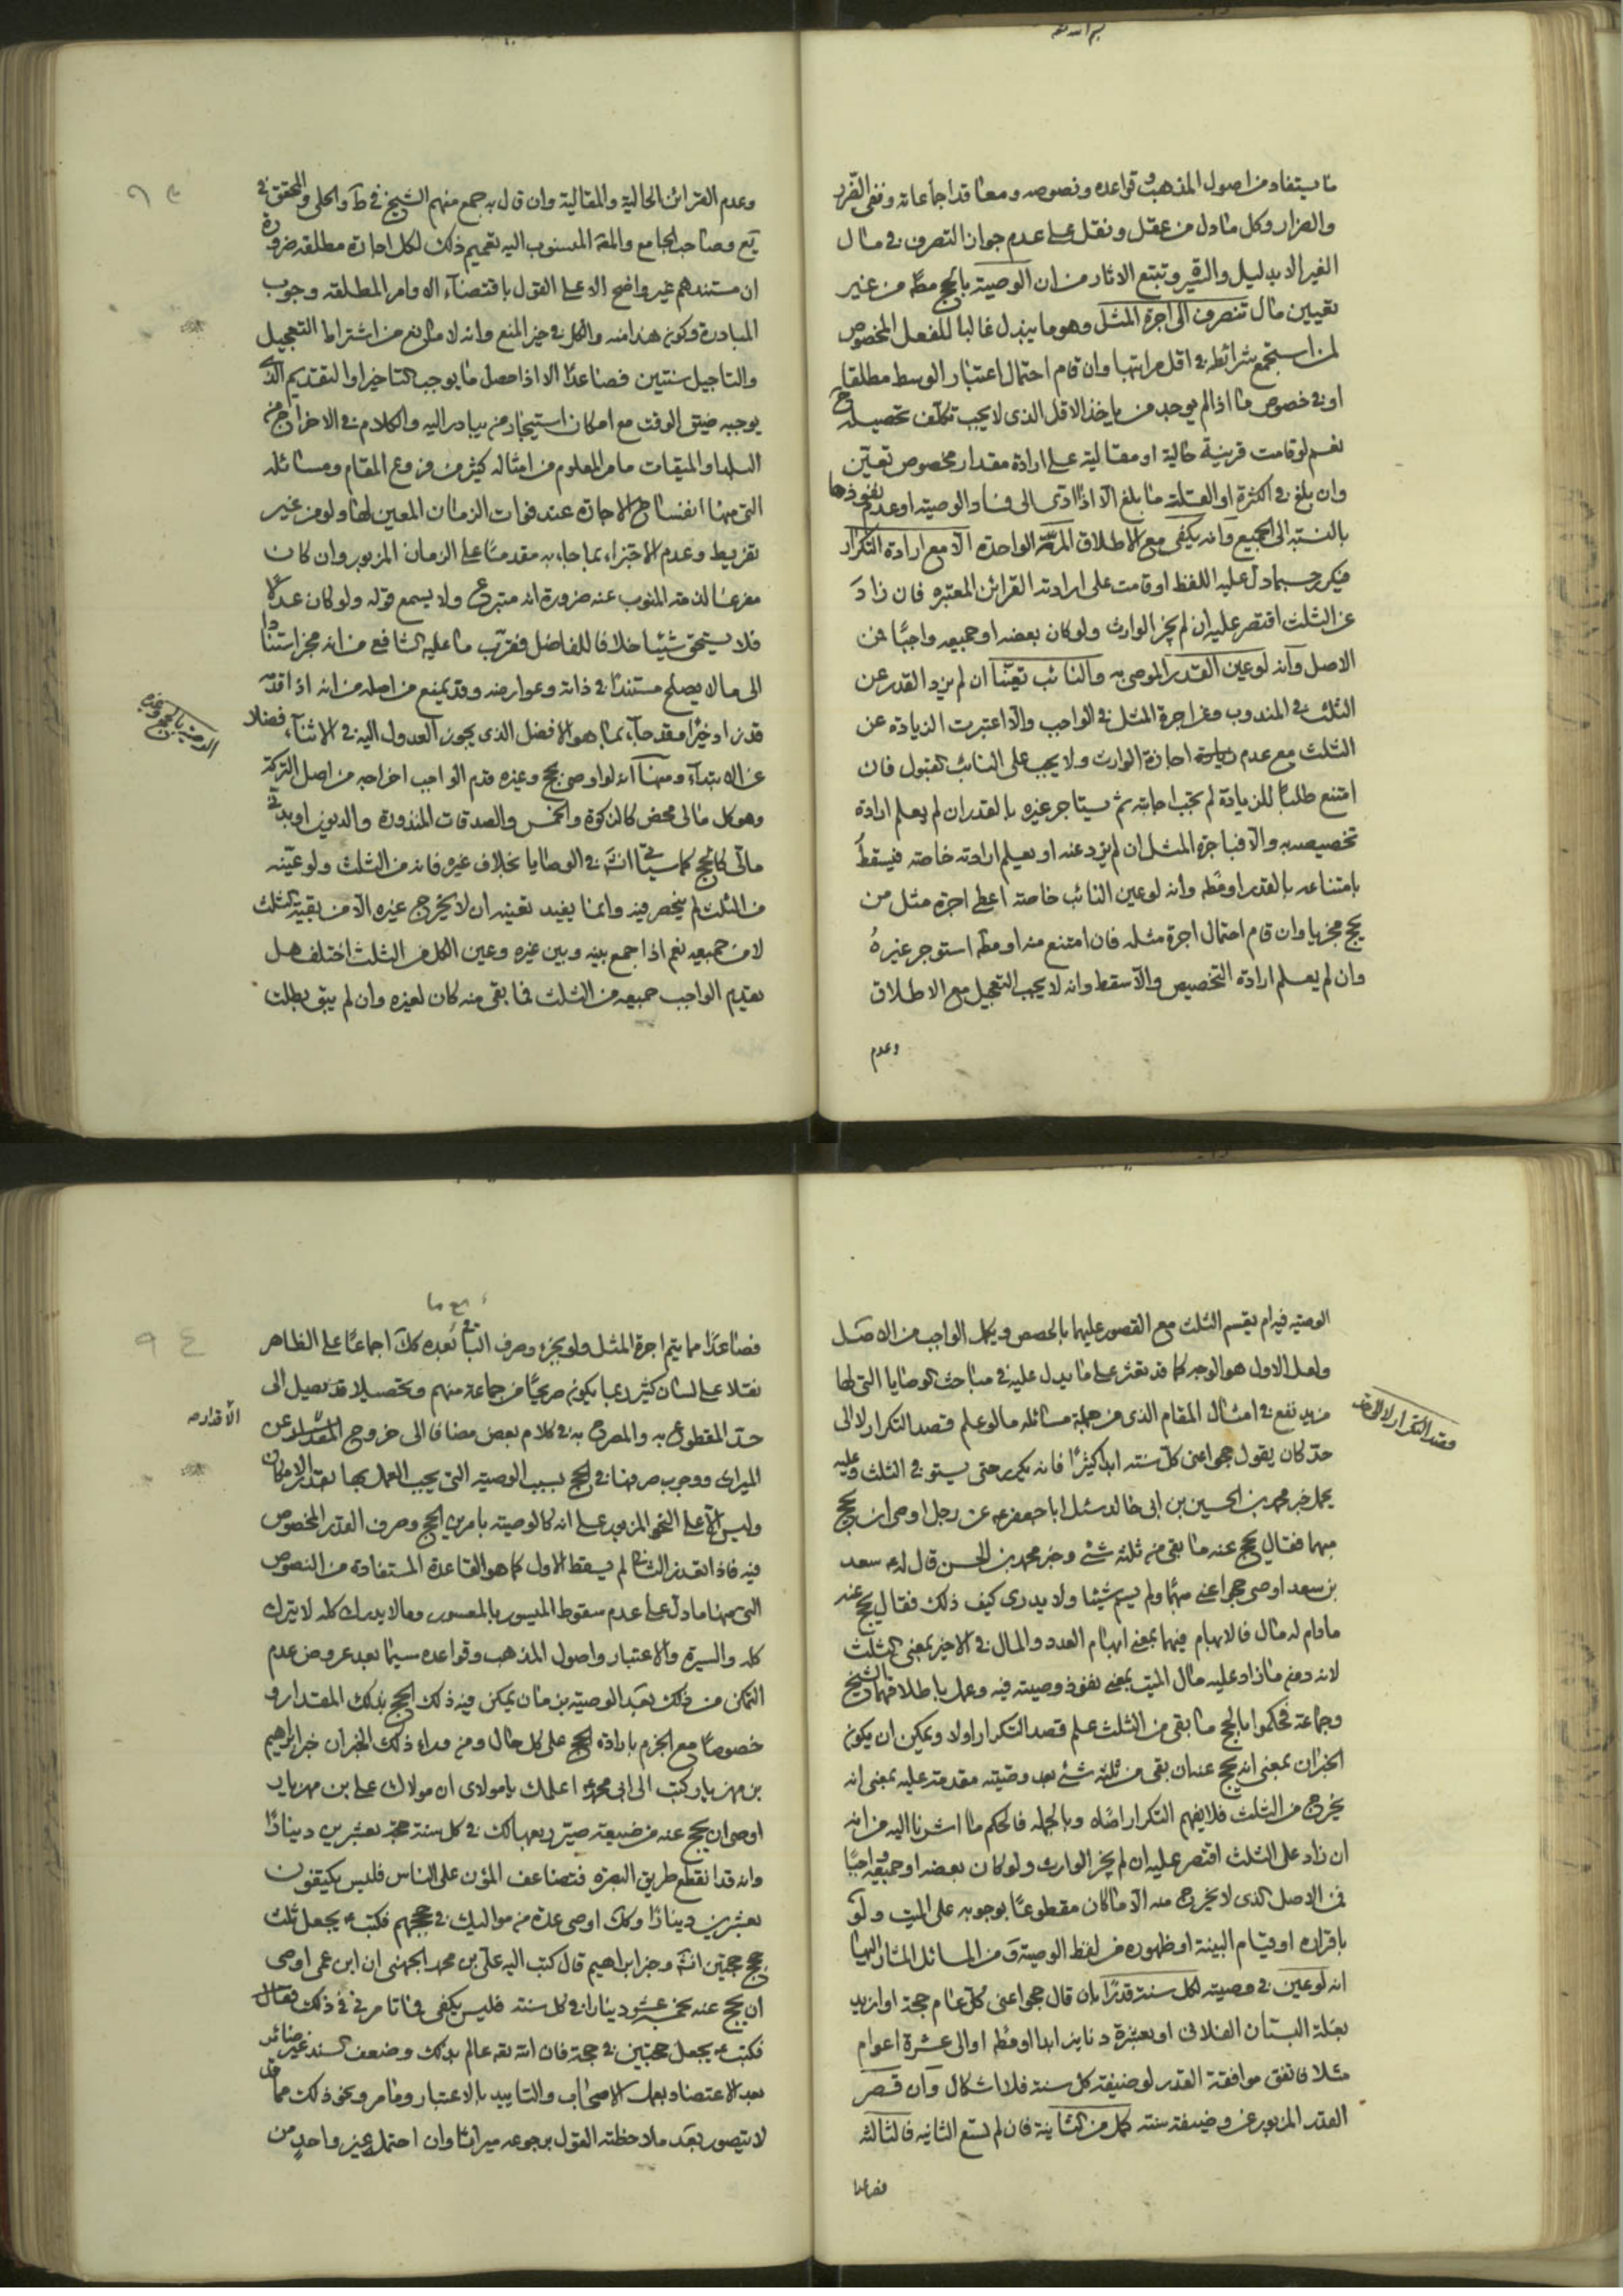 ما يستفاد من اصول المذهب و قواعده ونصوصه ومعاقد اجماعاته ونفى الضرر
والضرار وكل ما دل من عقل ونقل على عدم جواز التصرف فى مال
الغير الا بدليل والسيرة وتتبع الاثار من ان الوصية بالحج مطه من غير
تعيين مال تنصرف الى اجرة المثل وهو ما يبذل غالبا للفعل المخصوص
لمن استجمع شرائطه فى اقل مراتبها وان قام احتمال اعتبار الوسط مطلقا
او فى خصوص ما اذا لم يوجد من ياخذ الاقل الذى لا يجب تكلف تحصيله ح
نعم لو قامت قرينة حالية او مقالية على ارادة مقدار مخصوص تعين
وان بلغ فى الكثرة او القلة ما بلغ الا اذا ادى الى فساد الوصية او عدم نفوذها
بالنسبة الى الجميع وانه يكفى مع الاطلاق المرة الواحدة الا مع ارادة التكرار
فيكرر حسبما دل عليه اللفظ او قامت على ارادته القرائن المعتبره فان زاد
عن الثلث اقتصر عليه ان لم يجز الوارث ولو كان بعضه او جميعه واجبا فمن
الاصل وانه لو عين القدر الموصى به والنائب تعينا ان لم يزد القدر عن
الثلث فى المندوب وعن اجرة المثل فى الواجب والا اعتبرت الزيادة عن
الثلث مع عدم اجازة الوارث ولا يجب على النائب القبول فان
امتنع طلبا للزيادة لم تجب اجابته ثم يستاجر غيره بالقدر ان لم يعلم ارادة
تخصيصه به والا فباجرة المثل ان لم يزد عنه او يعلم ارادته خاصة فيسقط
بامتناعه بالقدر او مطه وانه لو عين النائب خاصة اعطى اجرة مثل من
يحج مجزيا وان قام احتمال اجرة مثله فان امتنع منه او مطه استوجر غيره
وان لم يعلم ارادة التخصيص والا سقط وانه لا يجب التعجيل مع الاطلاق
وعدم
وعدم القرائن الحالية والمقالية وان قال به جمع منهم الشيخ فى ط والحلى والمحقق فى
يع وصاحب الجامع والمة المنسوب اليه تعميم ذلك لكل اجارة مطلقه ضرورة
ان مستندهم غير واضح الا على القول باقتضاء الاوامر المطلقه وجوب
المبادرة وكون هذا منه والكل فى حيز المنع وانه لا مانع من اشتراط التعجيل
والتاجيل سنتين فصاعدا الا اذا حصل ما يوجب التاخير او التقديم الذى
يوجبه ضيق الوقت مع امكان استيجار من يبادر اليه والكلام فى الاخراج من
البلد او الميقات مامر المعلوم من امثاله كثير من فروع المقام ومسائله
التى منها انفساخ الاجارة عند فوات الزمان المعين لها ولو من غير
تفريط وعدم الاجتزاء بما جاء به مقدما على الزمان المزبور وان كان
مفرغا لذمة المنوب عنه ضرورة انه متبرع ولا يسمع قوله ولو كان عدلا
فلا يستحق شيئا خلافا للفاضل فقرب ما عليه الشافعى من انه مجز استنادا
الى ما لا يصلح مستندا فى ذاته وعوارضه وقد يمنع من اصله من انه اذا قدم
قدزاد خيرا وقد جاء بما هو الافضل الذى يجوز العدول اليه فى الاثناء فضلا
عن الابتداء ومنها انه لو اوصى بحج وغيره قدم الواجب اخراجه من اصل التركة
وهو كل مالى محض كالزكوة والخمس والصدقات المنذورة والديون او بدنى
مالى كالحج كما سياتى انشه فى الوصايا بخلاف غيره فانه من الثلث ولو عينه
من الثلث لم ينحصر فيه وانما يفيد تعيينه ان لا يخرج غيره الا من بقية الثلث
لا من جميعه نعم اذا جمع بينه وبين غيره وعين الكل من الثلث اختلف هل
يقدم الواجب جميعه من الثلث فما بقى منه كان لغيره وان لم يبق بطلت
الوصية بالحج وغيره
الوصية فيه ام يقسم الثلث مع القصور عليهما بالحصص ويكمل الواجب من الاصل
ولعل الاول هو الوجه كما قد تعثر على ما يدل عليه فى مباحث الوصايا التى لها
مزيد نفع فى امثال المقام الذى من جملة مسائله ما لو علم قصد التكرار لا الى
حد كان يقول حجوا عنى كل سنة ابدا كثيرا فانه يكرر حتى يستوفى الثلث وعليه
يحمل خبر محمد بن الحسين بن ابى خالد سئل ابا جعفر ع عن رجل اوصى ان يحج
مبهما فقال يحج عنه ما بقى من ثلثه شئ وخبر محمد بن الحسن قال له سعد
بن سعد اوصى حجوا عنى مبهما ولم يسم شيئا ولا يدرى كيف ذلك فقال يحج عنه
مادام له مال فالابهام فيهما بمعنى ابهام العدد والمال فى الاخير بمعنى الثلث
لانه دفع ما زاد عليه مال الميت بمعنى نفوذ وصيته فيه وعمل باطلاقهما الشيخ
وجماعة فحكموا بالحج ما بقى من الثلث علم قصد التكرار اولا ويمكن ان يكون
الخبران بمعنى انه يحج عنه ان بقى من ثلثه شئ بعد وصيته مقدمة عليه بمعنى انه
يخرج من الثلث فلا يفهم التكرار اصلا وبالجمله فالحكم ما اشرنا اليه من انه
ان زاد على الثلث اقتصر عليه ان لم يجز الوارث ولو كان بعضه او جميعه واجبا
فمن الاصل الذى لا يخرج منه الا ما كان مقطوعا بوجوبه على الميت ولو
باقراره او قيام البينة او ظهوره من لفظ الوصية ومن المسائل المشار اليها
انه لو عين فى وصيته لكل سنة قدرا بان قال حجوا عنى كل عام حجة او ازيد
بغلة البستان الفلانى او بعشرة دنانير ابدا او مطه او الى عشرة اعوام
مثلا فاتفق موافقة القدر لوضيفة كل سنة فلا اشكال وان قصر
القدر المزبور عن وضيفة سنته كمل من الثانية فان لم تسع الثانية فالثالثة
فصاعدا
قصد التكرار لا الى حد
فصاعدا مما يتم اجرة المثل ولو بجزء وصرف الباقى بعده كك اجماعا على الظاهر
نقلا على لسان كثير ربما يكون صريحا من جماعة منهم وتحصيلا قد يصل الى
حد المقطوع به والمصرح به فى كلام بعض مضافا الى خروج المقدار عن
الميراث ووجوب صرفها فى الحج بسبب الوصية التى يجب العمل بها بقدر الامكان
وليس الا على النحو المزبور على انه كالوصية بامرين الحج وصرف القدر المخصوص
فيه فاذا تعذر الثانى لم يسقط الاول كما هو القاعدة المستفادة من النصوص
التى منها ما دل على عدم سقوط الميسور بالمعسور وما لا يدرك كله لا يترك
كله والسيرة والاعتبار واصول المذهب وقواعده سيما بعد عروض عدم
التمكن من ذلك بعد الوصية بزمان يمكن فيه ذلك الحج بذلك المقدار و
خصوصا مع الجزم بارادة الحج على كل حال ومن وراء ذلك الخبران خبر ابراهيم
بن مهزيار كتب الى ابى محمد ع اعلمك يا مولاى ان مولاك على بن مهزيار
اوصى ان يحج عنه من ضيعة صير ربعها لك فى كل سنة حجة بعشرين دينارا
وانه قد انقطع طريق البصرة فتضاعف المؤن على الناس فليس يكتفون
بعشرين دينارا وكك اوصى عدة من مواليك فى حججهم فكتب ع يجعل ثلث
حجج حجتين انشه وخبر ابراهيم قال كتب اليه على بن محمد الجهنى ان ابن عمى اوصى
ان يحج عنه بخمسة عشر دينارا فى كل سنة فليس يكفى فما تامرنى فى ذلك فقال
فكتب ع يجعل حجتين فى حجة فان الله تعه عالم بذلك وضعف السند غير ضائر
بعد الاعتضاد بعمل الاصحاب والتاييد بالاعتبار وما مر ونحو ذلك مما قد
لا يتصور بعد ملاحظته القول برجوعه ميراثا وان احتمله غير واحد من